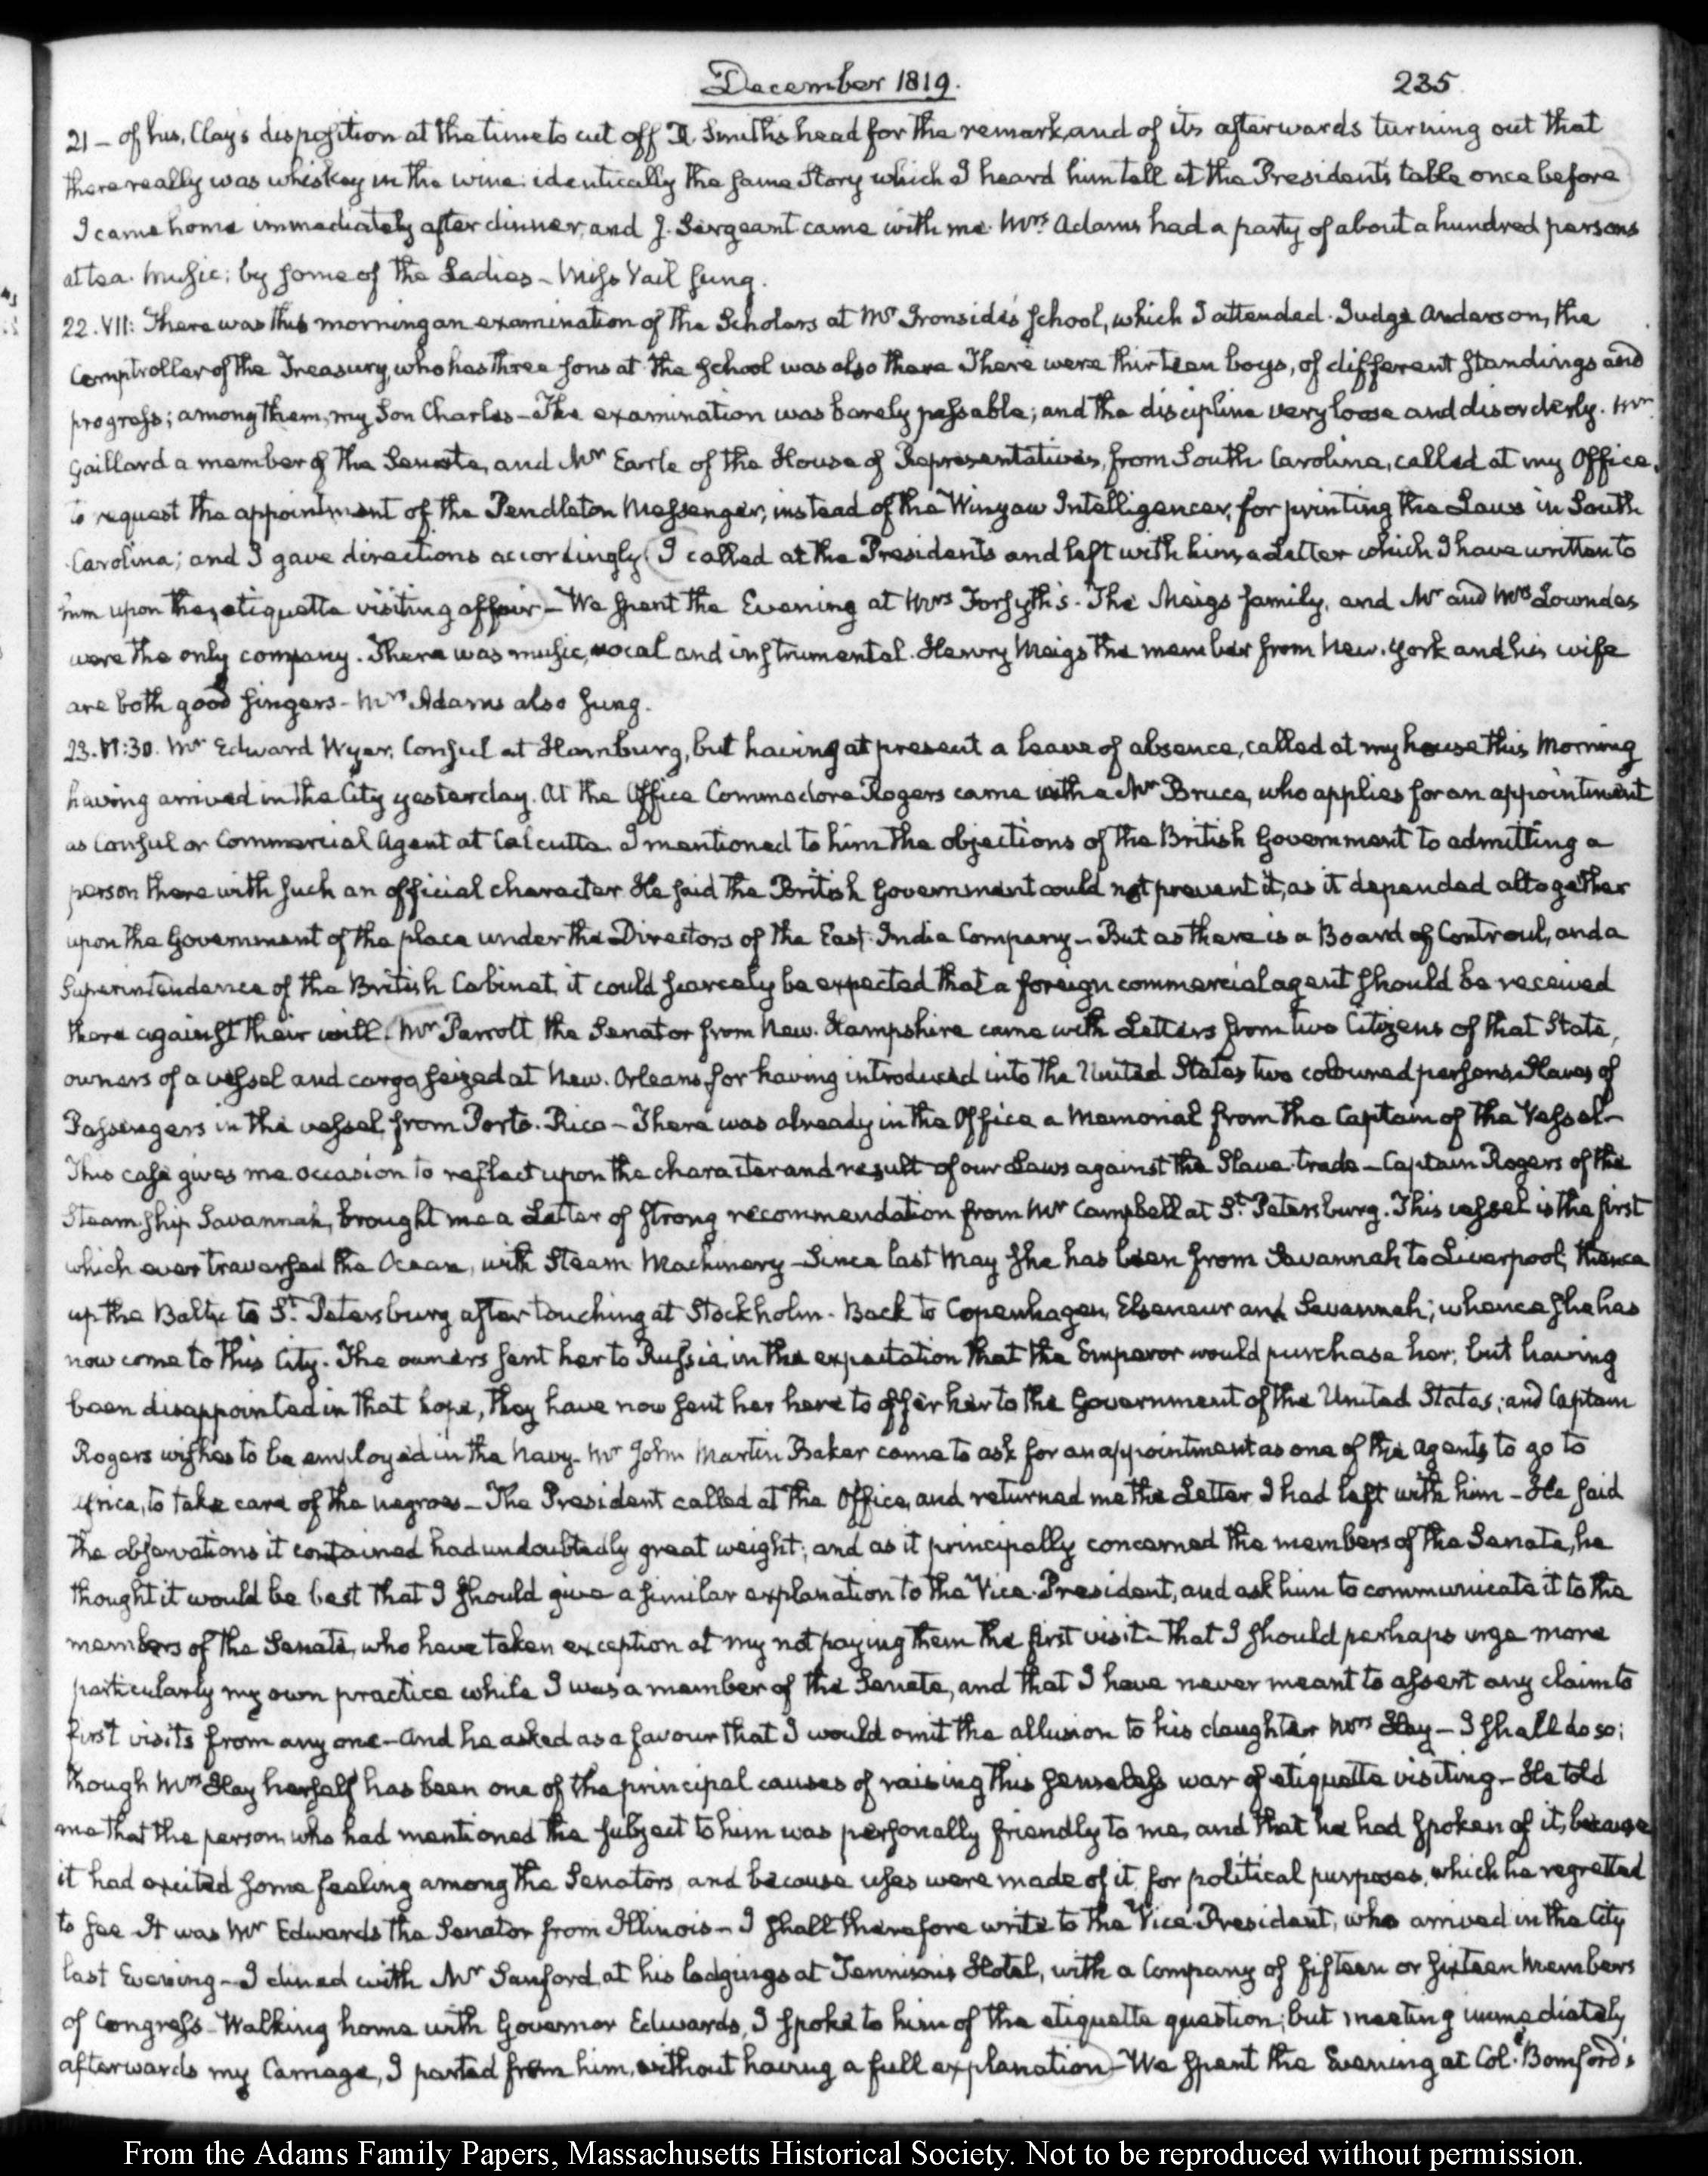 December 1819.
235
21 – of his, Clay's disposition at the time to cut off Dr. Smith's head for the remark, and of its afterwards turning out that
there really was whiskey in the wine: identically the same Story which I heard him tell at the Presidents table once before
I came home immediately after dinner, and J. Sergeant came with me. Mrs. Adams had a party of about a hundred persons
at tea. Music; by some of the Ladies – Miss Vail sung.
22. VII: There was this morning an examination of the Scholars at Mr Ironside's school, which I attended. Judge Anderson, the
Comptroller of the Treasury, who has three sons at the school was also there There were thirteen boys, of different standings and
progress; among them, my Son Charles – The examination was barely passable; and the discipline very loose and disorderly. Mr
Gaillard a member of the Senate, and Mr Earle of the House of Representatives, from South Carolina, called at my Office,
to request the appointment of the Pendleton Messenger, instead of the Winyaw Intelligencer, for printing the Laws in South
Carolina; and I gave directions accordingly (I called at the Presidents and left with him, a Letter which I have written to
him upon the, etiquette visiting affair) – We spent the Evening at Mrs Forsyth's. The Meigs family, and Mr and Mrs Lowndes
were the only company. There was music, vocal and instrumental. Henry Meigs the member from New. York and his wife
are both good singers – Mrs Adams also sung.
23. VI:30. Mr Edward Wyer, Consul at Hamburg, but having at present a leave of absence, called at my house this Morning
having arrived in the City yesterday. At the Office Commodore Rogers came with a Mr Bruce, who applies for an appointment
as Consul or Commercial Agent at Calcutta. I mentioned to him the objections of the British Government to admitting a
person there with such an official character He said the British Government could not prevent it, as it depended altogether
upon the Government of the place under the Directors of the East. India Company – But as there is a Board of Controul, and a
Superintendence of the British Cabinet, it could scarcely be expected that a foreign commercial agent should be received
there against their will. (Mr Parrott the Senator from New. Hampshire came with Letters from two Citizens of that State,
owners of a vessel and cargo seized at New. Orleans, for having introduced into the United States two coloured persons, Slaves of
Passengers in the vessel from Porto. Rico – There was already in the Office a Memorial from the Captain of the Vessel –
This case gives me occasion to reflect upon the character and result of our Laws against the Slave. trade – Captain Rogers of the
Steam Ship Savannah, brought me a Letter of strong recommendation from Mr Campbell at St. Petersburg. This vessel is the first
which ever traversed the Ocean, with Steam Machinery – Since last May she has been from Savannah to Liverpool, thence
up the Baltic to St. Petersburg after touching at Stockholm – Back to Copenhagen, Elseneur and Savannah; whence she has
now come to this City. The owners sent her to Russia, in the expectation that the Emperor would purchase her; but having
been disappointed in that hope, they have now sent her here to offer her to the Government of the United States; and Captain
Rogers wishes to be employed in the Navy – Mr John Martin Baker came to ask for an appointment as one of the Agents to go to
Africa, to take care of the negroes – The President called at the Office, and returned me the Letter I had left with him – He said
the observations it contained had undoubtedly great weight; and as it principally concerned the members of the Senate, he
thought it would be best that I should give a similar explanation to the Vice. President, and ask him to communicate it to the
members of the Senate, who have taken exception at my not paying them the first visit – that I should perhaps urge more
particularly my own practice while I was a member of the Senate, and that I have never meant to assert any claim to
first visits from any one – And he asked as a favour that I would omit the allusion to his daughter Mrs Hay – I shall do so;
though Mrs Hay herself has been one of the principal causes of raising this senseless war of etiquette visiting – He told
me that the person who had mentioned the subject to him was personally friendly to me, and that he had spoken of it, because
it had excited some feeling among the Senators, and because uses were made of it, for political purposes, which he regretted
to see It was Mr Edwards the Senator from Illinois – I shall therefore write to the Vice President, who arrived in the City
last Evening – I dined with Mr Sanford, at his lodgings at Tennison's Hotel, with a Company of fifteen or sixteen Members
of Congress – Walking home with Governor Edwards, I spoke to him of the etiquette question; but meeting immediately
afterwards my Carriage, I parted from him, without having a full explanation) – We spent the Evening at Col. Bomford's
From the Adams Family Papers, Massachusetts Historical Society. Not to be reproduced without permission.